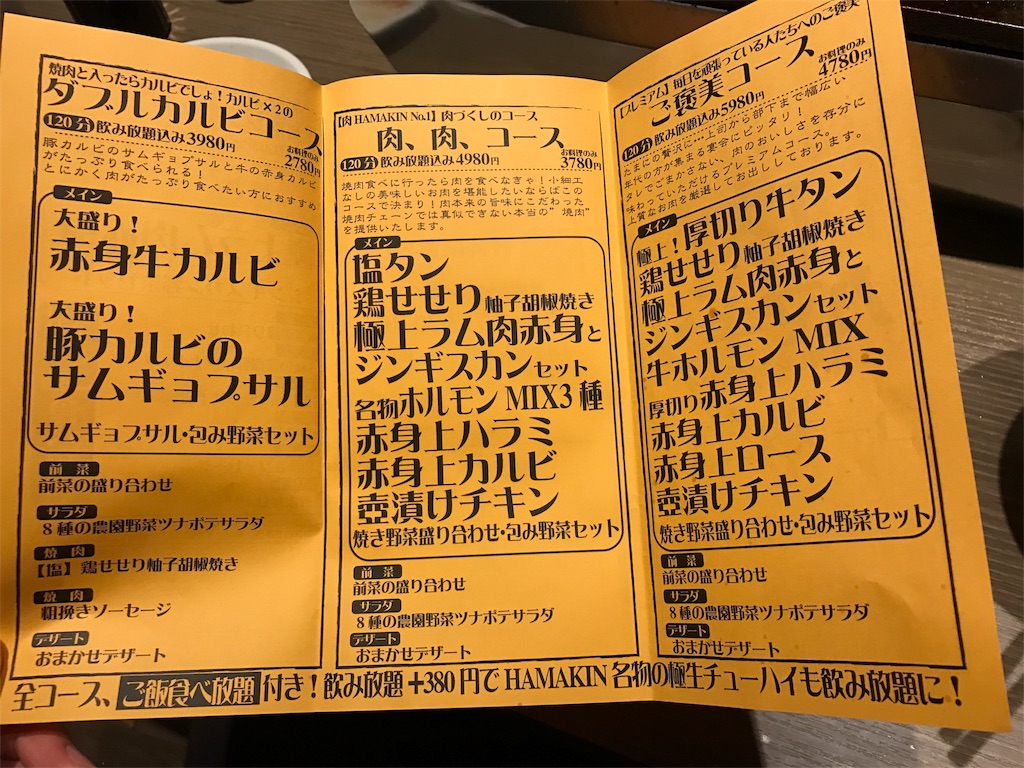 焼肉と入ったらカルビでしょ！カルビ×2の
ダブルカルビコース
120分 飲み放題込み3980円
お料理のみ
2780円
豚カルビのサムギョプサルと牛の赤身カルビ
がたっぷり食べられる！
とにかく肉がたっぷり食べたい方におすすめ
メイン
大盛り！
赤身牛カルビ
大盛り！
豚カルビの
サムギョプサル
サムギョプサル・包み野菜セット
前菜
前菜の盛り合わせ
サラダ
8種の農園野菜ツナポテサラダ
焼肉
【塩】鶏せせり柚子胡椒焼き
焼肉
粗挽きソーセージ
デザート
おまかせデザート
【肉HAMAKIN No.1】肉づくしのコース
肉、肉、コース
120分 飲み放題込み4980円
お料理のみ
3780円
焼肉食べに行ったら肉を食べなきゃ！小細工
なしの美味しいお肉を堪能したいならばこの
コースで決まり！肉本来の旨味にこだわった
焼肉チェーンでは真似できない本当の“焼肉”
を提供いたします。
メイン
塩タン
鶏せせり柚子胡椒焼き
極上ラム肉赤身と
ジンギスカンセット
名物ホルモンMIX3種
赤身上ハラミ
赤身上カルビ
壺漬けチキン
焼き野菜盛り合わせ・包み野菜セット
前菜
前菜の盛り合わせ
サラダ
8種の農園野菜ツナポテサラダ
デザート
おまかせデザート
【プレミアム】毎日を頑張っている人たちへのご褒美
ご褒美コース
120分 飲み放題込み5980円
お料理のみ
4780円
たまにの贅沢に…上司から部下まで幅広い
年代の方が集まる宴会にピッタリ！
タレでごまかさない、肉のおいしさを存分に
味わっていただけるプレミアムコース。
上質なお肉を厳選してお出ししております。
メイン
極上！厚切り牛タン
鶏せせり柚子胡椒焼き
極上ラム肉赤身と
ジンギスカンセット
牛ホルモンMIX
厚切り赤身上ハラミ
赤身上カルビ
赤身上ロース
壺漬けチキン
焼き野菜盛り合わせ・包み野菜セット
前菜
前菜の盛り合わせ
サラダ
8種の農園野菜ツナポテサラダ
デザート
おまかせデザート
全コース、ご飯食べ放題付き！飲み放題+380円でHAMAKIN名物の極生チューハイも飲み放題に！